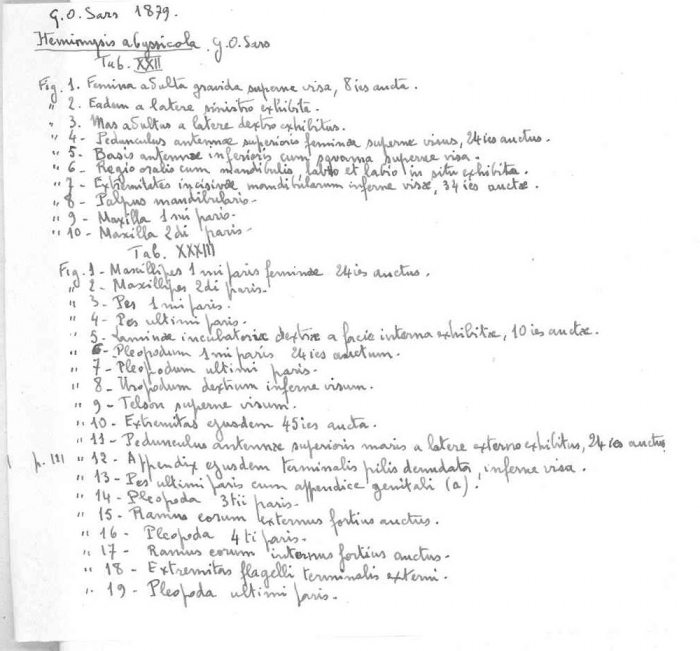 G.O. Sars 1879.
Hemimysis abyssicola G.O. Sars
Tab. XXII
Fig. 1. Femina adulta gravida superne visa, 8ies aucta.
" 2. Eadem a latere sinistro exhibita.
" 3. Mas adultus a latere dextro exhibitus.
" 4. Pedunculus antennæ superioris feminæ superne visus, 24ies auctus.
" 5. Basis antennæ inferioris cum squama superne visa.
" 6. Regio oralis cum mandibulis, labro et labio in situ exhibita.
" 7 - Extremitetes incisivæ mandibularum inferne visæ, 34ies auctæ.
" 8 - Palpus mandibularis -
" 9 - Maxilla 1mi paris -
" 10 - Maxilla 2di paris -
Tab. XXXIII
Fig. 1 - Maxillipes 1mi paris feminæ 24ies auctus.
" 2 - Maxillipes 2di paris -
" 3 - Pes 1mi paris.
" 4 - Pes ultimi paris -
" 5. Laminæ incubatoriæ dextræ a facie interna exhibitæ, 10ies auctæ.
" 6 - Pleopodum 1mi paris 24ies auctum -
" 7 - Pleopodum ultimi paris -
" 8 - Uropodum dextrum inferne visum.
" 9 - Telson superne visum.
" 10 - Extremitas ejusdem 45ies aucta.
" 11 - Pedunculus antennæ superioris maris a latere externo exhibitus, 24ies auctus
p. 121 " 12 - Appendix ejusdem terminalis pilis denudata, inferne visa.
" 13 - Pes ultimi paris cum appendice genitali (a).
" 14 - Pleopoda 3tii paris -
" 15 - Ramus eorum externus fortius auctus.
" 16 - Pleopoda 4ti paris -
" 17 - Ramus eorum internus fortius auctus -
" 18 - Extremitas flagelli terminalis externi -
" 19 - Pleopoda ultimi paris -